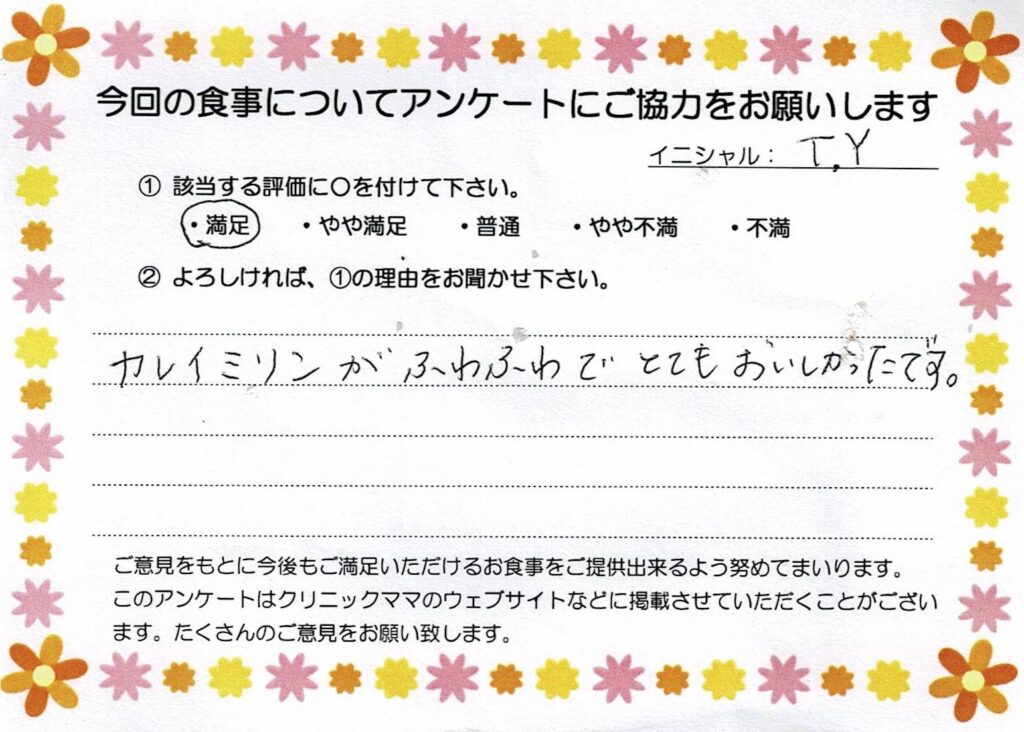 今回の食事についてアンケートにご協力をお願いします
イニシャル： T,Y
① 該当する評価に〇を付けて下さい。
・満足 ・やや満足 ・普通 ・やや不満 ・不満
② よろしければ、①の理由をお聞かせ下さい。
カレイミリンが ふわふわで とてもおいしかったです。
ご意見をもとに今後もご満足いただけるお食事をご提供出来るよう努めてまいります。
このアンケートはクリニックママのウェブサイトなどに掲載させていただくことがござい
ます。たくさんのご意見をお願い致します。